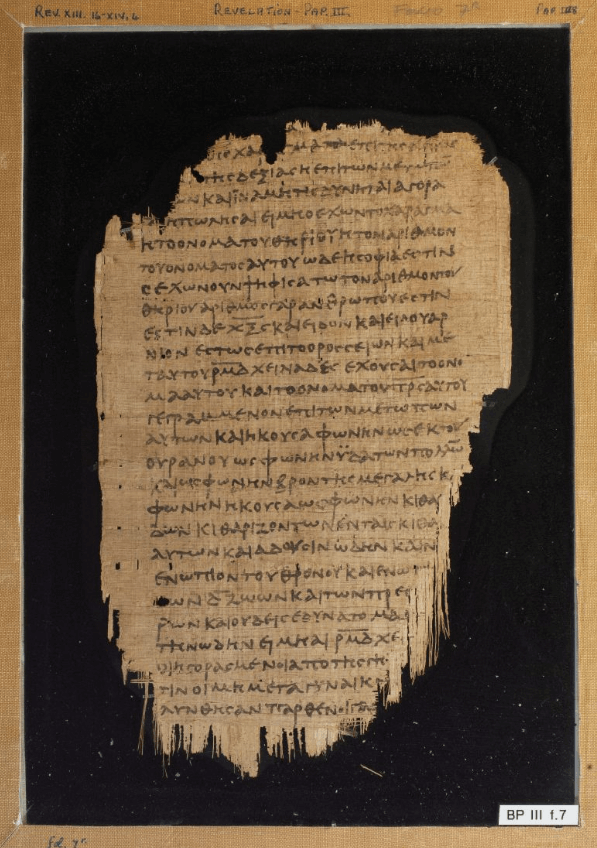 REV. XIII. 16-XIV, 4 REVELATION - PAP. III. FOLIO 7ʳ PAP. III
ΤΗϹ ΔΕΞΙΑϹ Η ΕΠΙ ΤΩΝ
ΚΑΙ ΙΝΑ ΜΗ ΤΙϹ ΔΥΝΗΤΑΙ ΑΓΟΡΑ
ΠΩΛΗϹΑΙ ΕΙ ΜΗ Ο ΕΧΩΝ ΤΟ ΧΑΡΑΓΜΑ
Η ΤΟ ΟΝΟΜΑ ΤΟΥ ΘΗΡΙΟΥ Η ΤΟΝ ΑΡΙΘΜΟΝ
ΤΟΥ ΟΝΟΜΑΤΟϹ ΑΥΤΟΥ ΩΔΕ Η ϹΟΦΙΑ ΕϹΤΙΝ
ΕΧΩΝ ΝΟΥΝ ΨΗΦΙϹΑΤΩ ΤΟΝ ΑΡΙΘΜΟΝ ΤΟΥ
ΘΗΡΙΟΥ ΑΡΙΘΜΟϹ ΓΑΡ ΑΝΘΡΩΠΟΥ ΕϹΤΙΝ
ΕϹΤΙΝ ΔΕ ΧΞϚ ΚΑΙ ΕΙΔΟΝ ΚΑΙ ΕΙΔΟΥ ΑΡ
ΝΙΟΝ ΕϹΤΩϹ ΕΠΙ ΤΟ ΟΡΟϹ ϹΕΙΩΝ ΚΑΙ ΜΕ
ΤΑΥΤΟΥ ΡΜΔ ΧΕΙΛΙΑΔΕϹ ΕΧΟΥϹΑΙ ΤΟ ΟΝΟ
ΜΑ ΑΥΤΟΥ ΚΑΙ ΤΟ ΟΝΟΜΑ ΤΟΥ ΠΡϹ ΑΥΤΟΥ
ΓΕΓΡΑΜΜΕΝΟΝ ΕΠΙ ΤΩΝ ΜΕΤΩΠΩΝ
ΑΥΤΩΝ ΚΑΙ ΗΚΟΥϹΑ ΦΩΝΗΝ ΩϹ ΕΚ ΤΟΥ
ΟΥΡΑΝΟΥ ΩϹ ΦΩΝΗΝ ΫΔΑΤΩΝ ΠΟΛΛΩ
ΚΑΙ ΩϹ ΦΩΝΗΝ ΒΡΟΝΤΗϹ ΜΕΓΑΛΗϹ Κ
ΦΩΝΗΝ ΗΚΟΥϹΑ ΩϹ ΦΩΝΗΝ ΚΙΘΑ
ΔΩΝ ΚΙΘΑΡΙΖΟΝΤΩΝ ΕΝ ΤΑΙϹ ΚΙΘΑ
ΑΥΤΩΝ ΚΑΙ ΑΔΟΥϹΙΝ ΩΔΗΝ ΚΑΙΝ
ΕΝΩΠΙΟΝ ΤΟΥ ΘΡΟΝΟΥ ΚΑΙ ΕΝΩ
ΤΩΝ Δ ΖΩΩΝ ΚΑΙ ΤΩΝ ΠΡΕϹ
ΡΩΝ ΚΑΙ ΟΥΔΕΙϹ ΕΔΥΝΑΤΟ ΜΑ
ΤΗΝ ΩΔΗΝ ΕΙ ΜΗ ΑΙ ΡΜΔ ΧΕΙ
ΟΙ ΗΓΟΡΑϹΜΕΝΟΙ ΑΠΟ ΤΗϹ ΓΗ
ΤΙΝ ΟΙ ΜΗ ΜΕΤΑ ΓΥΝΑΙΚ
ΛΥΝΘΗϹΑΝ ΠΑΡΘΕΝΟΙ
BP III f.7
fol. 7ʳ